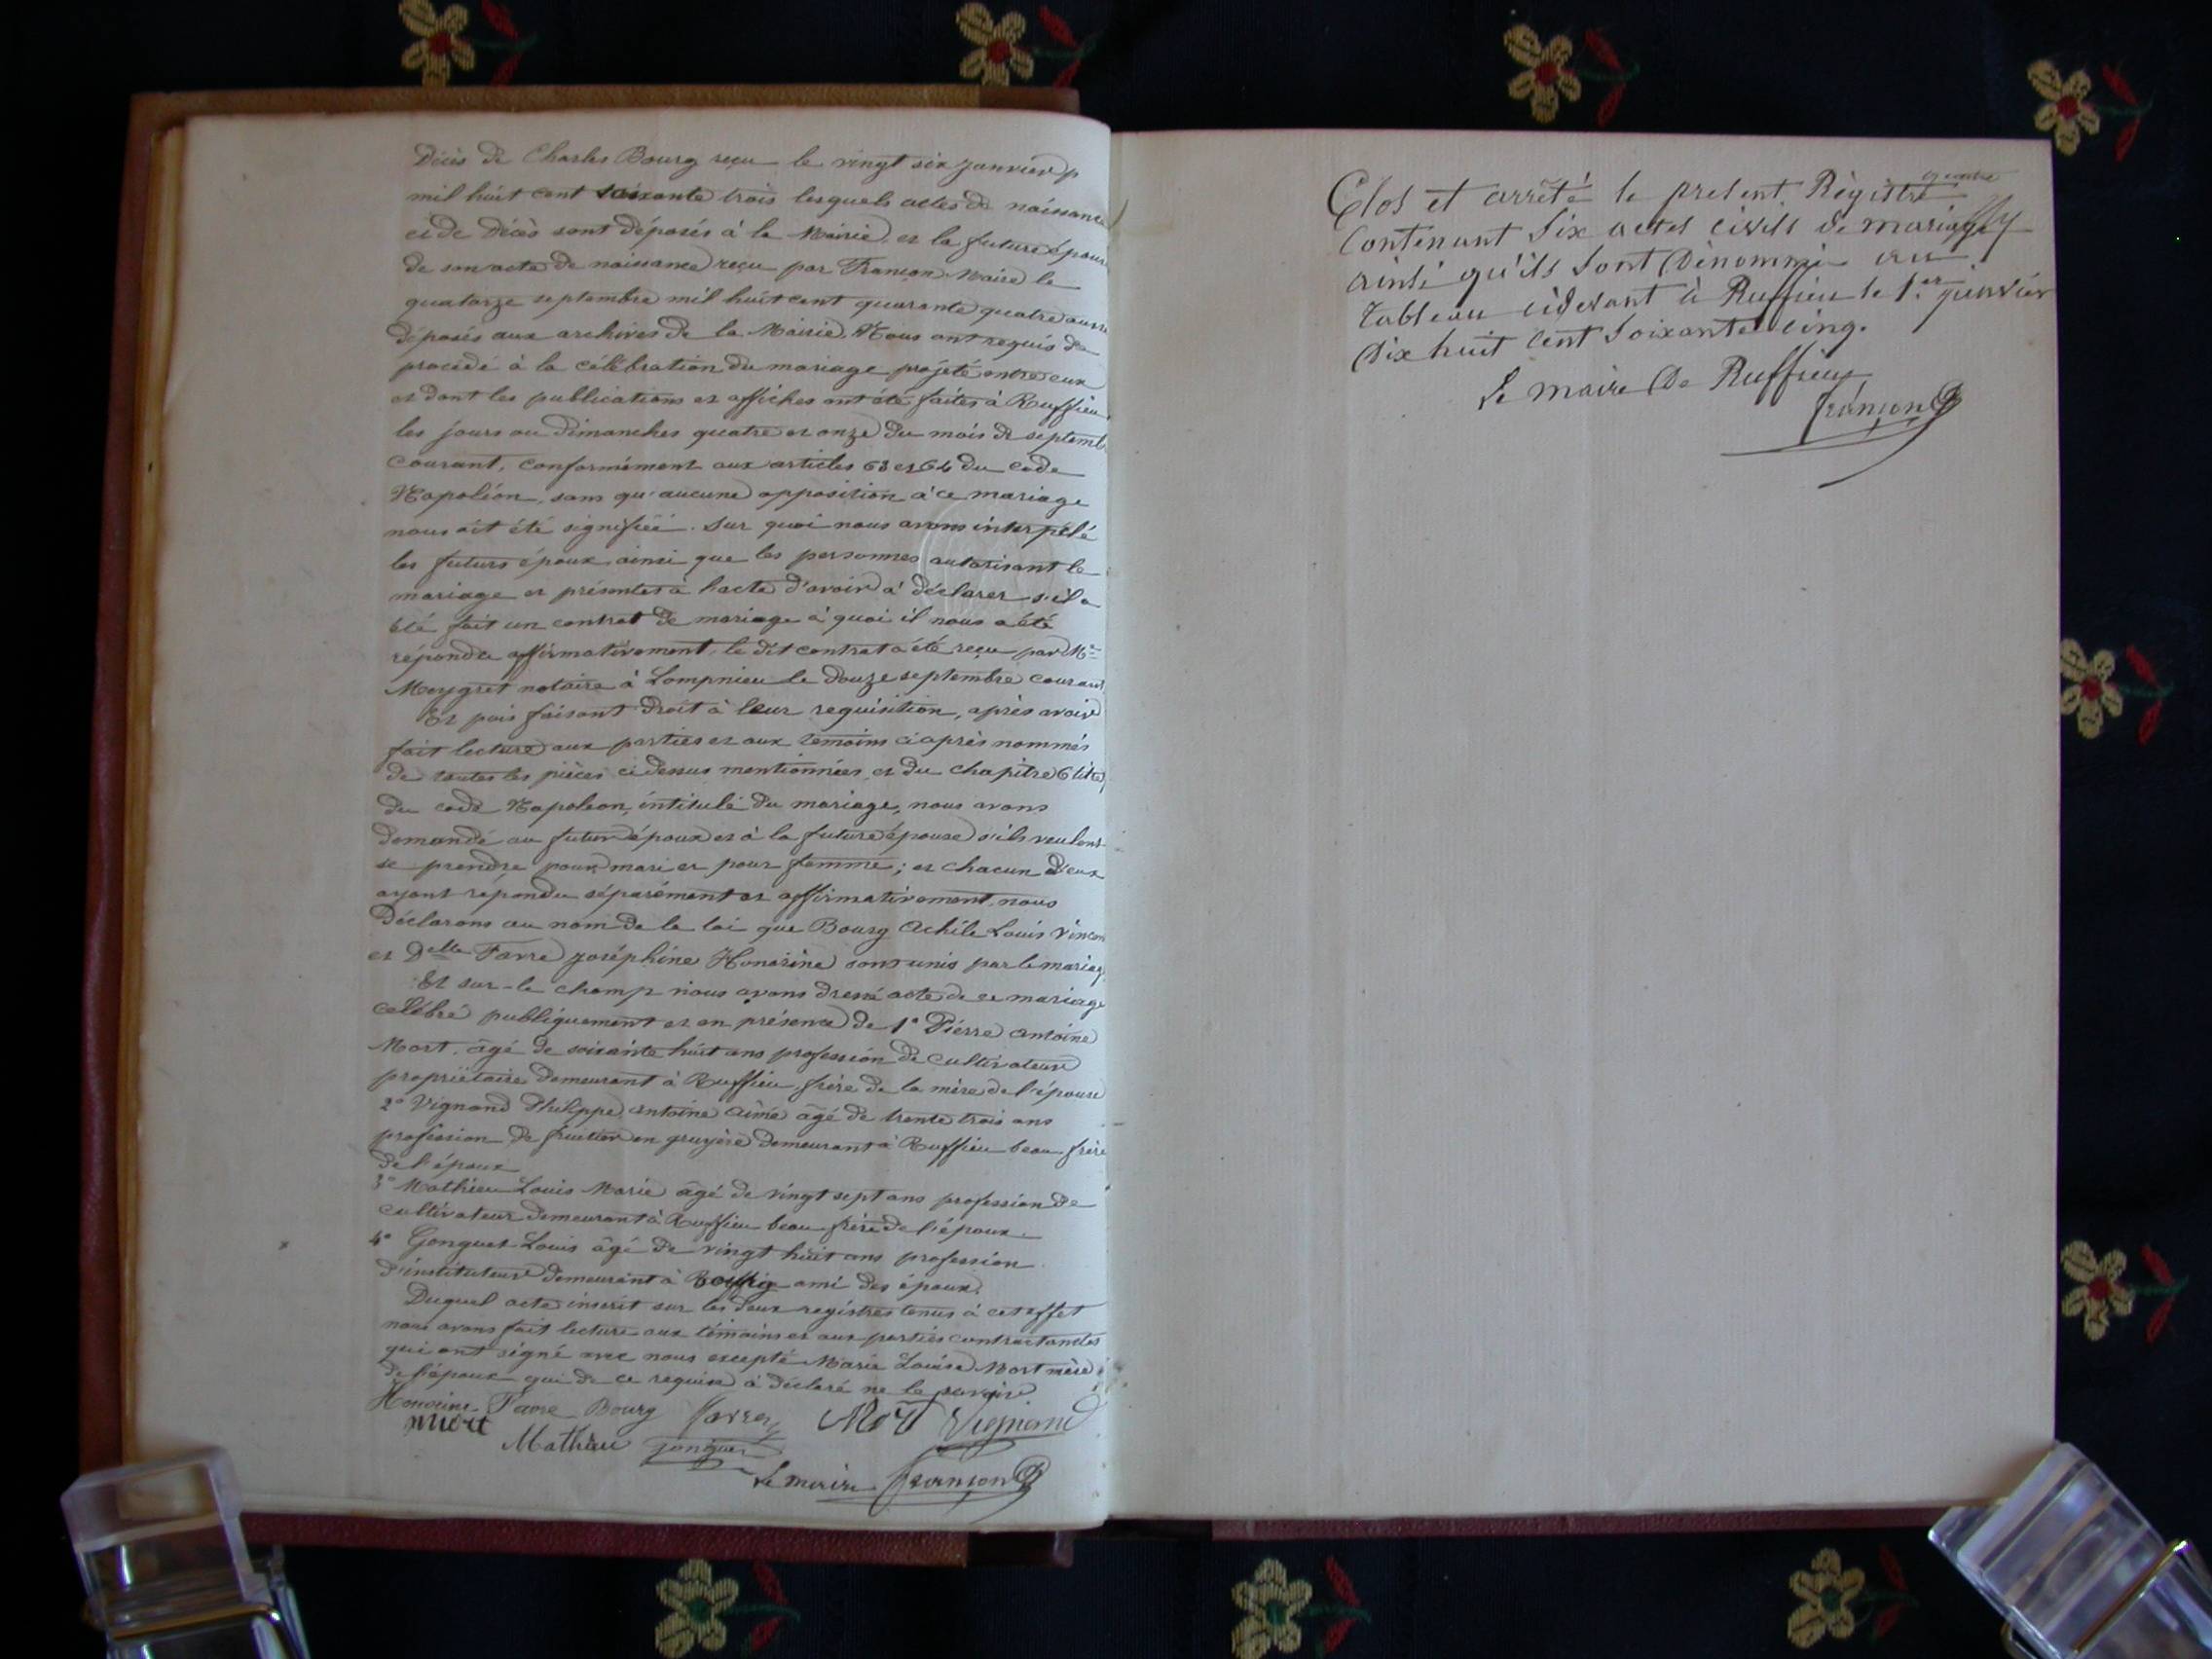 Décès de Charles Bourg reçu le vingt six janvier
mil huit cent soixante trois lesquels actes de naissance
et de Décès sont déposés à la Mairie, et la future épouse
de son acte de naissance reçu par Françon Maire le
quatorze septembre mil huit cent quarante quatre aussi
déposés aux archives de la Mairie. Nous ont requis de
procédé à la célébration du mariage projeté entre eux
et dont les publications et affiches ont été faites à Ruffieu
les jours au Dimanches quatre et onze du mois de septemb
courant, conformément aux articles 63 et 64 du code
Napoléon, sans qu'aucune opposition à ce mariage
nous ait été signifiée. Sur quoi nous avons interpelé
les futurs époux ainsi que les personnes autorisant le
mariage et présentes à l'acte d'avoir à déclarer s'il a
été fait un contrat de mariage à quoi il nous a été
répondu affirmativement, le dit contrat a été reçu par Me
Meygret notaire à Lompnieu le Douze septembre courant
Et puis faisant droit à leur requisition, après avoir
fait lecture aux parties et aux temoins ci après nommés
de toutes les pièces ci dessus mentionnées, et du chapitre 6 titre
du code Napoleon, intitulé du mariage, nous avons
demandé au futur époux et à la future épouse s'ils veulent
se prendre pour mari et pour femme; et chacun d'eux
ayant répondu séparément et affirmativement, nous
Déclarons au nom de la loi que Bourg Achile Louis Vincen
et Delle Favre Joséphine Honorine sont unis par le mariag
Et sur-le champ nous avons dressé acte de ce mariage
célébré publiquement et en présence de 1° Pierre antoine
Mort, âgé de soixante huit ans profession de cultivateur
propriétaire demeurant à Ruffieu, frère de la mère de l'épouse
2° Vignand Philippe antoine Aimé âgé de trente trois ans
profession de fruitier en gruyère demeurant à Ruffieu beau frère
de l'époux
3° Mathieu Louis Marie âgé de vingt sept ans profession de
cultivateur demeurant à Ruffieu beau frère de l'époux.
4° Gonguet Louis âgé de vingt huit ans profession
d'instituteur demeurant à ami des époux.
Duquel acte inscrit sur les deux registres tenus à cet effet
nous avons fait lecture aux témoins et aux parties contractantes
qui ont signé avec nous excepté Marie Louise Mort mère
de l'époux qui de ce requise à déclaré ne le savoir
Honorine Favre Bourg Favre Mort Vignand
mort
Mathieu Gonguet
Le maire Françon
Clos et arrêté le present Règistre
Contenant Six actes civils de mariage
ainsi qu'ils sont Dénommé au
tableau cidevant à Ruffieu le 1.er janvier
Dix huit cent Soixante cinq.
Le maire De Ruffieu
françon